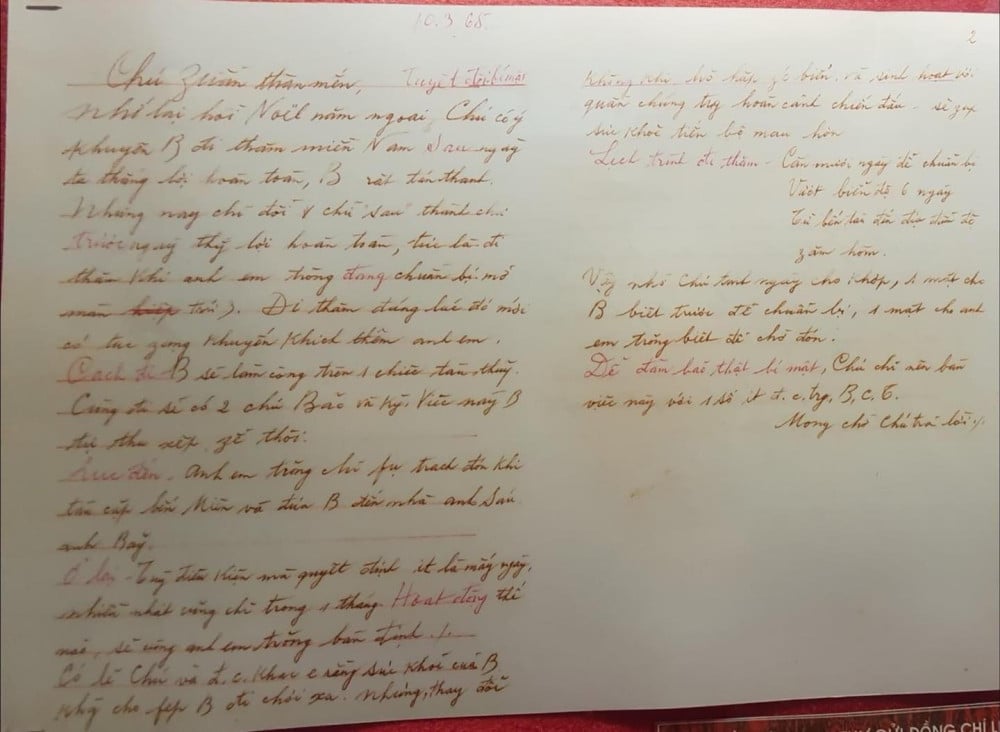 10.3.68
2
Chú Zuẩn thân mến, Tuyệt đối bí mật
Nhớ lại hồi Nôël năm ngoái, Chú có ý
khuyên B đi thăm miền Nam sau ngày
ta thắng lợi hoàn toàn, B rất tán thành.
Nhưng nay chỉ đổi 1 chữ "sau" thành chữ
trước ngày thắng lợi hoàn toàn, tức là đi
thăm khi anh em trỏng đang chuẩn bị mở
màn hiệp
Đi thăm đúng lúc đó mới
có tác zụng khuyến khích thêm anh em.
Cách đi B sẽ làm công trên 1 chiếc tàu thủy.
Cùng đi sẽ có 2 chú Bắc và Kỳ. Việc này B
tự thu xếp, zễ thôi.
Lúc đến. Anh em trỏng chỉ fụ trách đón khi
tàu cập bến Miên và đưa B đến nhà anh Sáu
anh Bảy.
Ở lại - Tuỳ điều kiện mà quyết định ít là mấy ngày,
nhiều nhất cũng chỉ trong 1 tháng. Hoạt động thế
nào, sẽ cùng anh em trỏng bàn định ./.
Có lẽ Chú và đ.c. khác e rằng sức khoẻ của B
khg cho fép B đi chơi xa. Nhưng, thay đổi
không khí, hô hấp zó biển, và sinh hoạt với
quần chúng trg hoàn cảnh chiến đấu - sẽ zúp
sức khoẻ tiến bộ mau hơn
Lịch trình đi thăm - Cần mười ngày để chuẩn bị
Vượt biển độ 6 ngày
Từ bến tàu đến địa điểm độ
zăm hôm.
Vậy nhờ Chú tính ngày cho khớp, 1 mặt cho
B biết trước để chuẩn bị, 1 mặt cho anh
em trỏng biết để chờ đón.
Để đảm bảo thật bí mật, Chú chỉ nên bàn
việc này với 1 số ít đ.c. trg B.C.T.
Mong chờ Chú trả lời ./.
GỬI ĐỒNG CHÍ